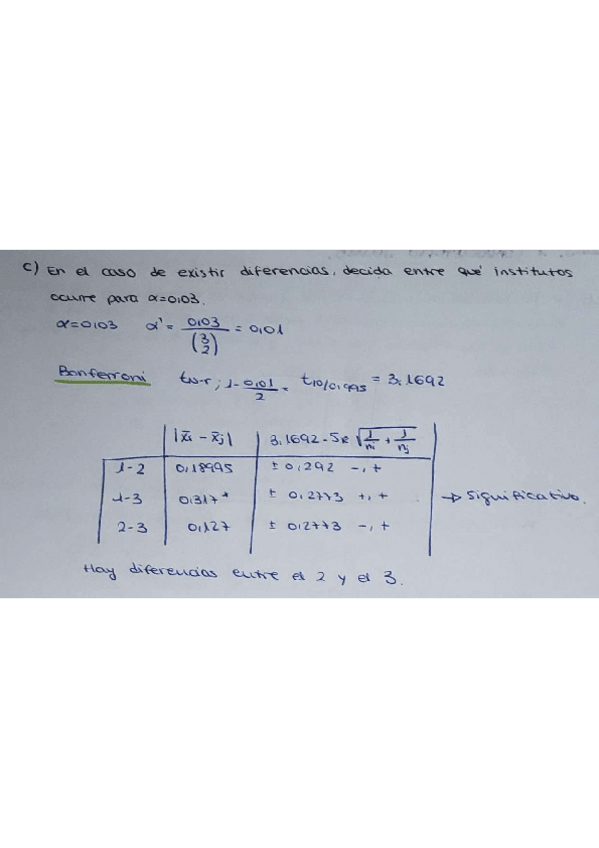 c) En el caso de existir diferencias, decida entre qué institutos
ocurre para α=0,03.
α=0,03 α' = 0,03 / (3 2) = 0,01
Bonferroni tN-r; 1-0,01/2 = t10;0,995 = 3,1692
|x̄i - x̄j| 3,1692 · SR √(1/ni + 1/nj)
1-2 0,18995 ± 0,292 -, +
1-3 0,317* ± 0,2773 +, + → Significativo.
2-3 0,127 ± 0,2773 -, +
Hay diferencias entre el 2 y el 3.